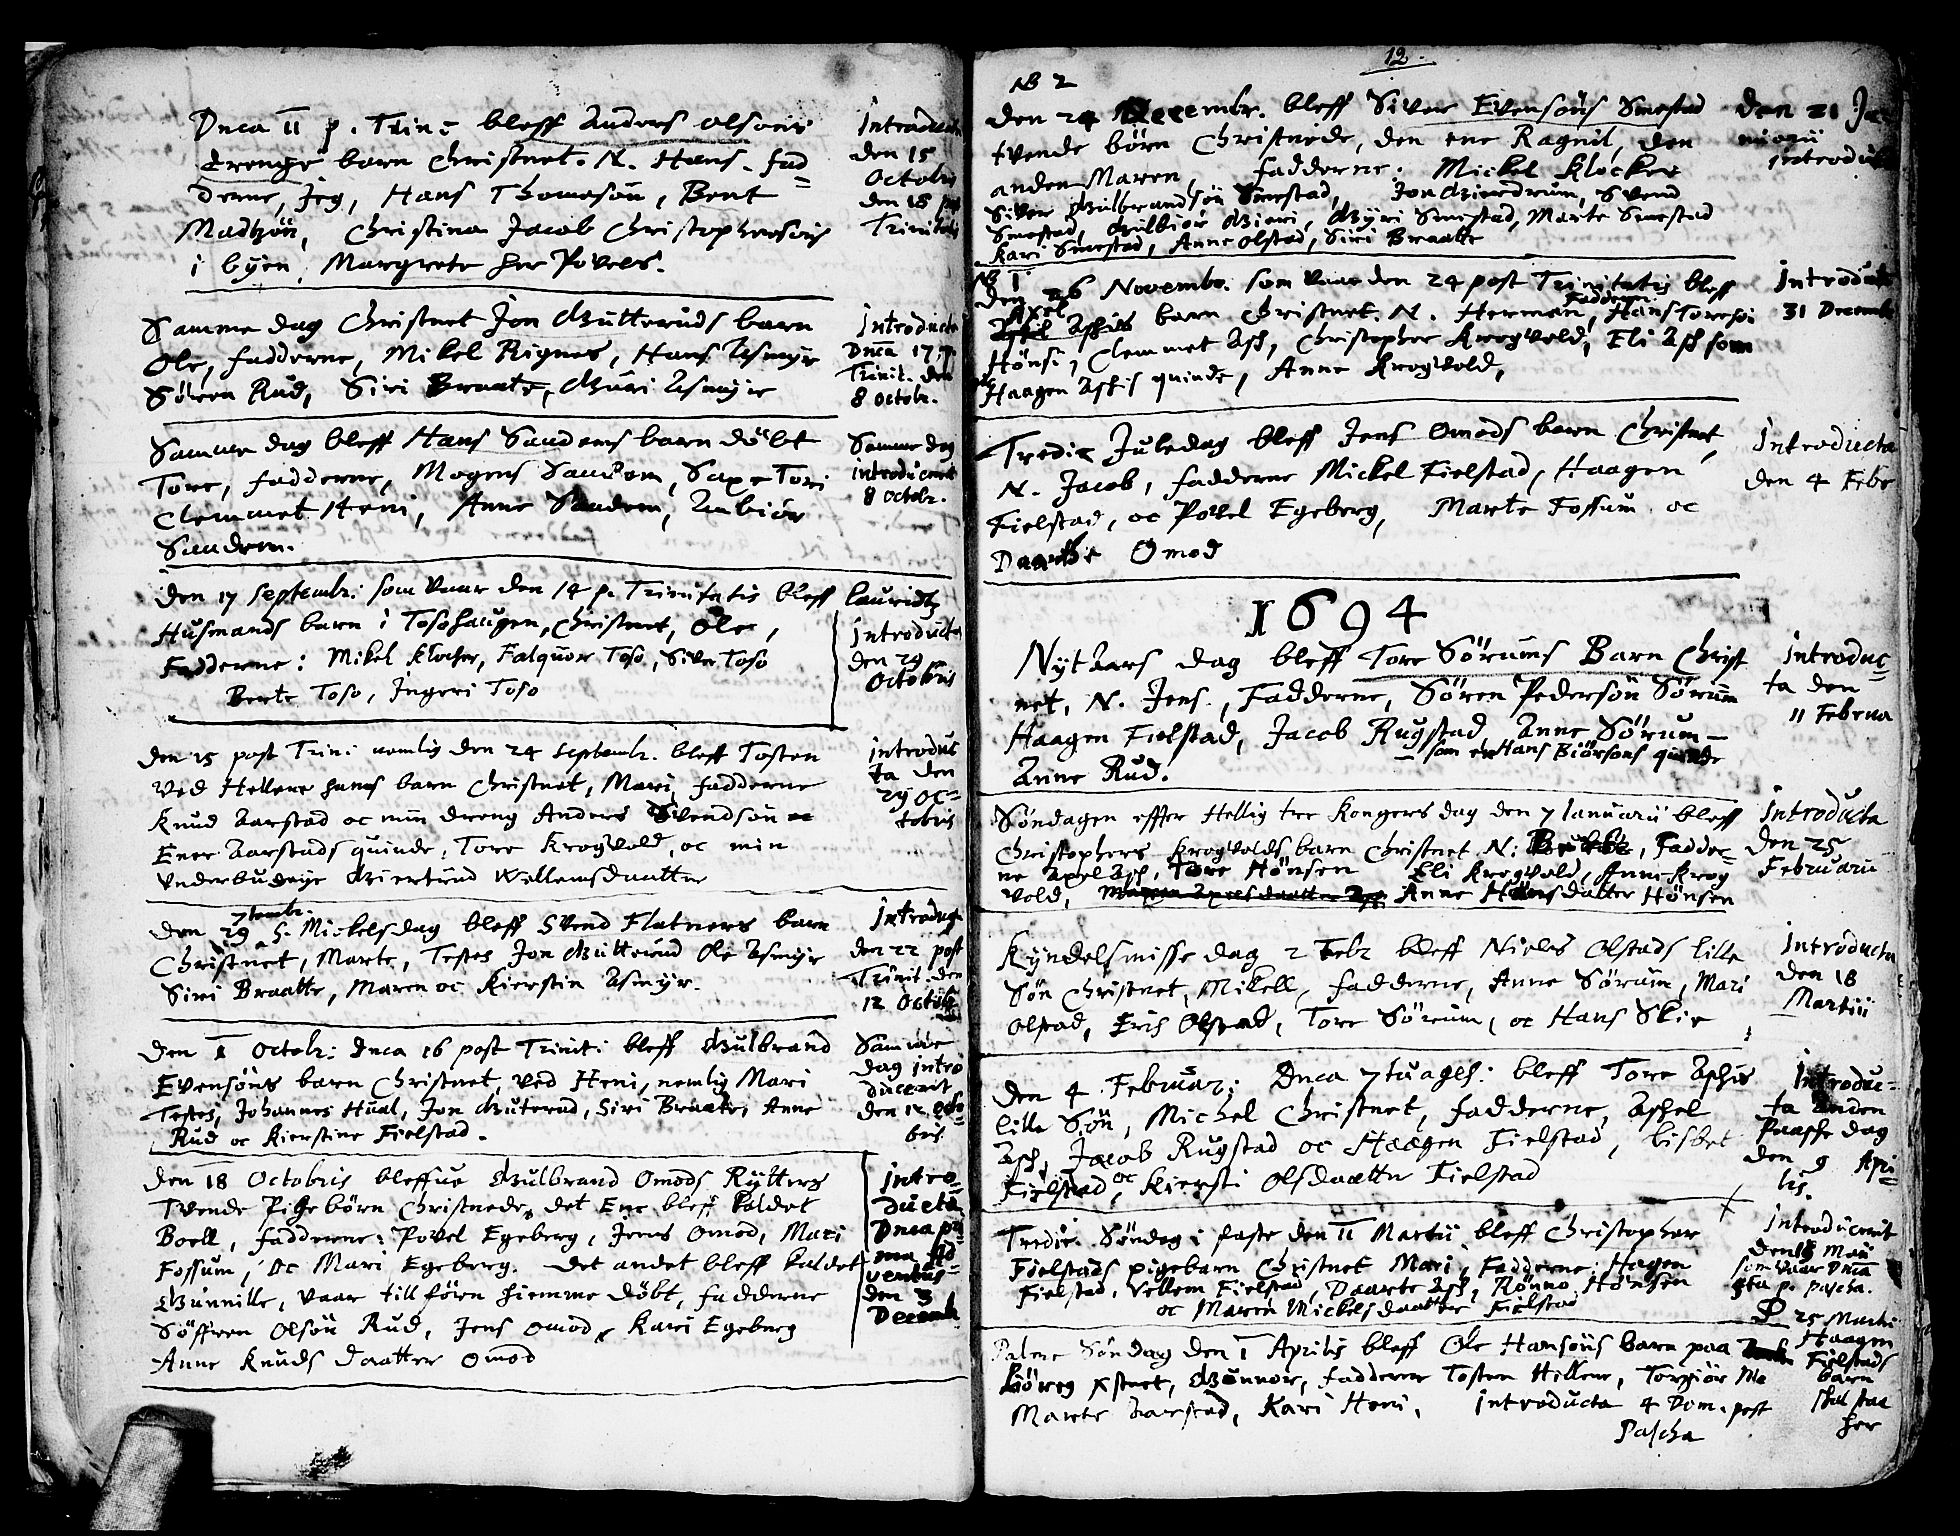 Dnca 11 p. Trini bleff Anders Olsøns
drengs barn Christnet. N. Hans. fad=
derne, Jeg, Hans Thomesøn, Bent
Madtzøn, Christina Jacob Christophersøns
i byen, Margrete her Povels.
Introducta
den 15
Octobris
den 18 post
Trinitatis
Samme dag Christnet Jon Gutteruds barn
Ole, fadderne, Mikel Rignes, Hans Asmyr
Søren Rud, Siri Braate, Guri Asmyr
Introducta
Dnca 17 p.
Trinit. den
8 Octobr.
Samme dag bleff Hans Sandems barn døbt
Tore, fadderne, Mogens Sandem, Saxe Tori
Clemmet Heni, Anne Sandem, Anbiør
Sandem.
Samme dag
introducerit
8 octobr.
Den 17 Septembr: som vaar den 14 p. Trinitatis bleff lauridtz
Husmands barn i Tosohaugen, Christnet, Ole,
Fadderne: Mikel Klocker, Falquor Toso, Siver Toso
Berte Toso, Ingeri Toso
introducta
den 29
Octobris
Den 15 post Trini nemlig den 24 Septembr. bleff Tosten
ved Hellene hans barn Christnet, Mari, fadderne
Knud Aarstad oc min dreng Anders Svendsøn oc
Ener Aarstads quinde, Tore Krogvold, oc min
Underbudeye Giertrud Wellemsdaatter
introduc
ta den
29 Oc=
tobris
7tembr.
Den 29 S. Mickelsdag bleff Svend Flatners barn
Christnet, Marte, Testes Jon Gutterud Ole Asmyr
Siri Braatte, Maren oc Kierstin Asmyr.
Introduc
den 22 post
Trinit. den
12 Octob
Den 1 Octobr: Dnca 16 post Triniti bleff Gulbrand
Evensøns barn Christnet, ved Heni, nemlig Mari
Testes, Johannes Hual, Jon Guterud, Siri Braate, Anne
Rud oc Kierstine Fielstad.
Samme
dag intro
ducerit
den 12 octo=
bris
Den 18 Octobris bleffue Gulbrand Omods Rytters
Tvende Pige børn Christnede, det Ene bleff kaldet
Boell, fadderne: Povel Egeberg, Jens Omod, Mari
Fossum, oc Mari Egeberg. Det andet bleff kaldet
Gunnille, vaar till førn hiemme døbt, fadderne
Søffren Olsøn Rud, Jens Omod, Kari Egeberg
Anne Knuds daatter Omod
intro=
ducta
Dnca pri
ma Ad
ventus
den 3
Decemb
12.
NB 2
Den 24 Decembr. bleff Siver Evensøns Smestad
tvende børn Christnede, den ene Ragnil, den
anden Maren, fadderne. Mickel Klocker
Siver Gulbrandsøn Smestad, Jon Gierdrum, Svend
Smestad, Gulbiør Gieri, Gyri Smestad, Marte Smestad
Kari Smestad, Anne Olstad, Siri Braatte
Den 21 Ja
nuarii
introduc
NB 1
Den 26 Novembr. som vaar den 24 post Trinitatis bleff
Axel Fadderne
Aschis barn Christnet. N. Herman, Hans Toresøn
Hønsi, Clemmet Asch, Christopher Krogvold, Eli Asch som
Haagen Aschis quinde, Anne Krogvold,
Introducta
31 Decemb
Tredie Juledag bleff Jens Omods barn Christnet,
N. Jacob, fadderne Mickel Fielstad, Haagen
Fielstad, oc Povel Egeberg, Marte Fossum oc
Daarthe Omod
Introducta
den 4 Febr
1694
Nyt Aars dag bleff Tore Sørums Barn Christ
net, N. Jens., Fadderne, Søren Pedersøn Sørum
Haagen Fielstad, Jacob Rugstad Anne Sørum—
som er Hans Biørsons quinde
Anne Rud.
Introduc=
ta den
11 Februa
Søndagen effter Hellig tre Kongers dag den 7 Januarii bleff
Christophers Krogvolds barn Christnet N: , Fadder=
ne Axel Asch, Tore Hønsen Eli Krogvold, Anne Krog
vold, Anne Hansdatter Hønsen
Introducta
Den 25
Februarii
Kyndelsmisse dag 2 Febr bleff Niels Olstads lille
Søn Christnet, Mikell, fadderne, Anne Sørum, Mari
Olstad, Erich Olstad, Tore Sørum, oc Hans Skie
Introducta
den 18
Martii
Den 4 Februar: Dnca 7tuages: bleff Tore Aschis
lille Søn, Michel Christnet, fadderne, Aschel
Asch, Jacob Rugstad oc Haagen Fielstad, Lisbet
Fielstad, oc Kiersti Olsdaatter Fielstad
Introduc=
ta anden
Paasche dag
den 9 Apri=
lis.
Tredie Søndag i faste den 11 Martii bleff Christopher
Fielstads pigebarn Christnet Mari, Fadderne: Hagen
Fielstad, Vellem Fielstad, Daarte Asch, Rønno Hønsen
oc Maren Mickelsdaatter Fielstad
introducerit
den 13 Maii
som vaar Dnca
4ta p. pascha.
D 25 Marti
Haagen
Fielstads
barn
skal staa
her
Palme Søndag den 1 Aprilis bleff Ole Hansøns barn paa
Xstnet, Gunnor, fadderne Tosten Hellene, Torgiør Mo
Marte Aarstad, Kari Heni, introducta 4 Dom. post
Pascha